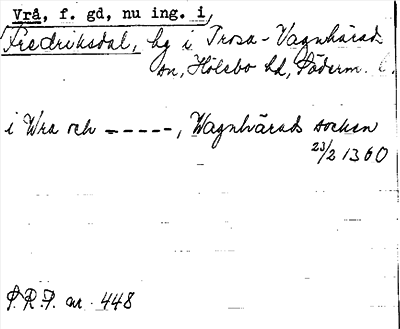 Vrå, f. gd, nu ing. i
Fredriksdal, hg i Trosa-Vagnhärad
sn, Hölebo hd, Söderm. l.
i Wra och -----, Wagnhärads socken
23/2 1360
S.R.P. nr. 448